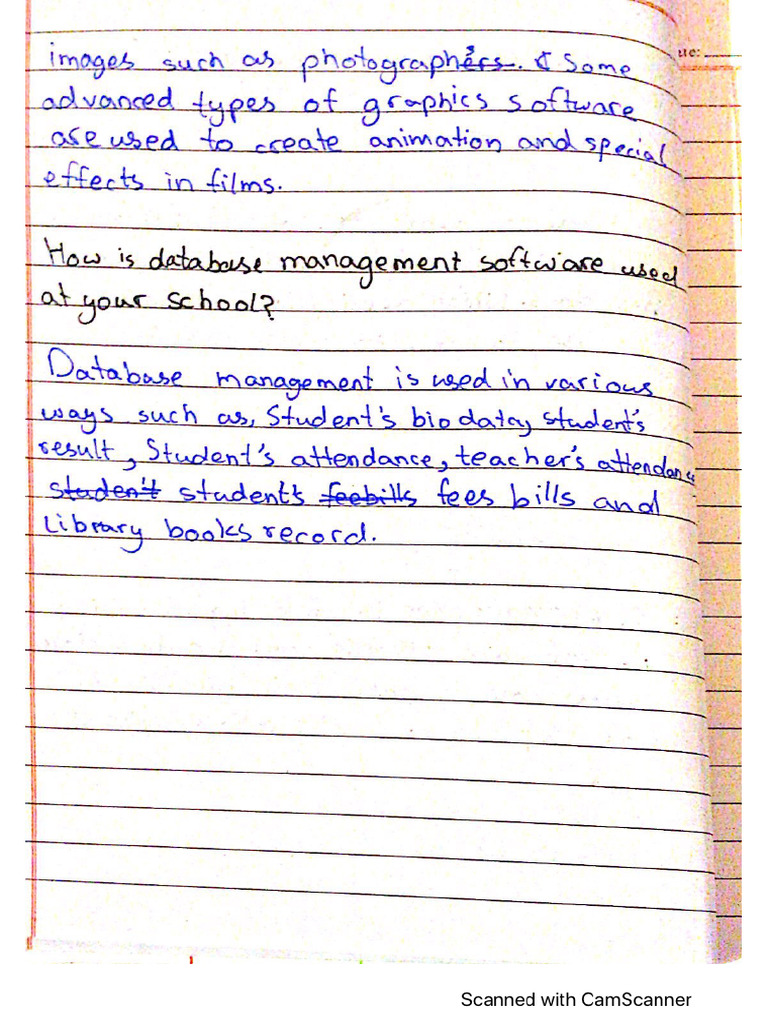 images such as photographers. & Some
ue:
advanced types of graphics software
are used to create animation and special
effects in films.
How is database management software used
at your school?
Database management is used in various
ways such as, Student's bio data, student's
result, Student's attendance, teacher's attendance
student's student's feebills fees bills and
Library books record.
Scanned with CamScanner